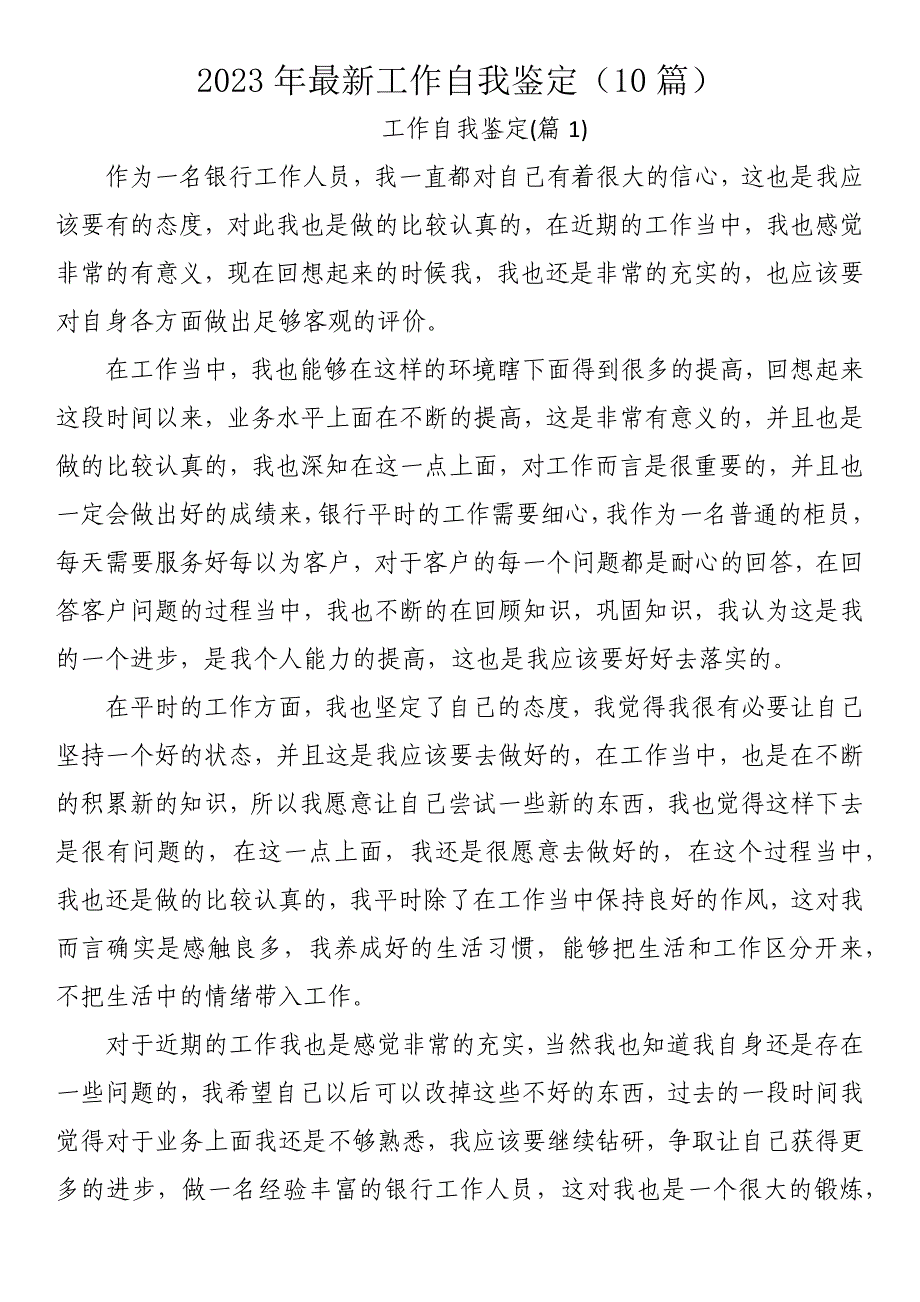 2023 年最新工作自我鉴定（10 篇）
工作自我鉴定(篇 1)
作为一名银行工作人员，我一直都对自己有着很大的信心，这也是我应
该要有的态度，对此我也是做的比较认真的，在近期的工作当中，我也感觉
非常的有意义，现在回想起来的时候我，我也还是非常的充实的，也应该要
对自身各方面做出足够客观的评价。
在工作当中，我也能够在这样的环境瞎下面得到很多的提高，回想起来
这段时间以来，业务水平上面在不断的提高，这是非常有意义的，并且也是
做的比较认真的，我也深知在这一点上面，对工作而言是很重要的，并且也
一定会做出好的成绩来，银行平时的工作需要细心，我作为一名普通的柜员，
每天需要服务好每以为客户，对于客户的每一个问题都是耐心的回答，在回
答客户问题的过程当中，我也不断的在回顾知识，巩固知识，我认为这是我
的一个进步，是我个人能力的提高，这也是我应该要好好去落实的。
在平时的工作方面，我也坚定了自己的态度，我觉得我很有必要让自己
坚持一个好的状态，并且这是我应该要去做好的，在工作当中，也是在不断
的积累新的知识，所以我愿意让自己尝试一些新的东西，我也觉得这样下去
是很有问题的，在这一点上面，我还是很愿意去做好的，在这个过程当中，
我也还是做的比较认真的，我平时除了在工作当中保持良好的作风，这对我
而言确实是感触良多，我养成好的生活习惯，能够把生活和工作区分开来，
不把生活中的情绪带入工作。
对于近期的工作我也是感觉非常的充实，当然我也知道我自身还是存在
一些问题的，我希望自己以后可以改掉这些不好的东西，过去的一段时间我
觉得对于业务上面我还是不够熟悉，我应该要继续钻研，争取让自己获得更
多的进步，做一名经验丰富的银行工作人员，这对我也是一个很大的锻炼，